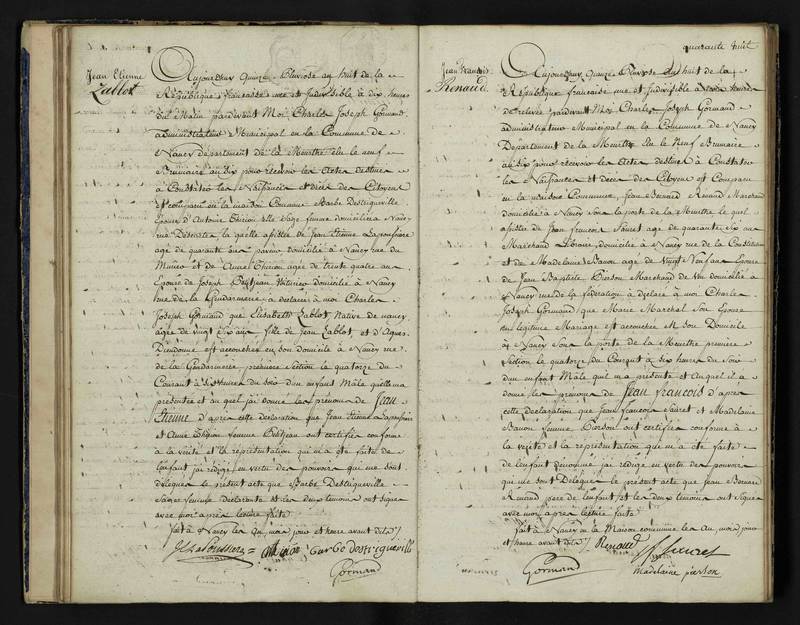 Jean Etienne
Lablot
Aujourdhuy Quinze Pluviose an huit de la
République française une et Indivisible à dix heures
du Matin pardevant Moi Charles Joseph Gormand
administrateur Municipal en la Commune de
Nancy département de la Meurthe élu le neuf
Brumaire an dix pour recevoir les Actes destinés
à Constater les Naissances et décès des Citoyens
est comparu en la maison Commune Barbe Destriqueville
Epouse d'Antoine Thirion elle Sage femme domiciliée à Nancy
rue la quelle assistée de Jean Etienne Lapoussiere
agé de quarante ans domicilié à Nancy rue du
et de Anne Thirion agée de trente quatre ans
Epouse de Joseph Petitjean domicilié à Nancy
rue de la Gendarmerie a déclaré à moi Charles
Joseph Gormand que Elisabeth Lablot Native de nancy
agée de vingt six ans fille de Jean Lablot et d'Agnes
Dieudonné est accouchée en son domicile à Nancy rue
de la Gendarmerie premiere Section le quatorze du
Courant à heures du soir d'un enfant Mâle quelle m'a
présenté et au quel j'ai donné les prénoms de Jean
Etienne d'après cette déclaration que Jean Etienne Lapoussiere
et Anne Thirion femme Petitjean ont certifiée conforme
à la vérité et la représentation qui m'a été faite de
l'enfant j'ai rédigé en vertu des pouvoirs qui me sont
délégués le présent acte que Barbe Destriqueville
Sage femme déclarante et les deux témoins ont signé
avec moi après lecture faite
fait à Nancy les an, mois, jour et heure avant dits /.
Barbe destriqueville
Gormand
quarante huit
Jean François
Renaud
Aujourdhuy Quinze Pluviose an huit de la
République française une et Indivisible à heures
de relevée pardevant Moi Charles Joseph Gormand
administrateur Municipal en la Commune de Nancy
Département de la Meurthe élu le Neuf Brumaire
an dix pour recevoir les Actes destinés à Constater
les Naissances et décès des Citoyens est Comparu
en la maison Commune, Jean Bernard Renaud Marchand
domicilié à Nancy sous la porte de la Meurthe le quel
assisté de Jean francois agé de quarante six ans
Marchand Libraire, domicilié à Nancy rue de la Constitution
et de Madelaine Banon agé de vingt neuf ans Epouse
de Jean Baptiste Pierson Marchand de Vin domicilié à
Nancy rue de la fédération a déclaré à moi Charles
Joseph Gormand que Marie Marchal son Epouse
en légitime Mariage est accouchée en son Domicile
à Nancy sous la porte de la Meurthe premiere
Section le quatorze du Courant à six heures du Soir
d'un enfant Mâle qu'il m'a présenté et Auquel il a
donné les prénoms de Jean françois d'après
cette déclaration que Jean françois et Madelaine
Banon femme Pierson ont certifiée conforme à
la vérité et la représentation qui m'a été faite
de l'enfant dénommé j'ai rédigé en vertu des pouvoirs
qui me sont Délégués le présent acte que Jean Bernard
Renaud pere de l'enfant et les deux témoins ont signé
avec moi après lecture faite
fait à Nancy en la Maison commune les an, mois, jour
et heure avant dits /. Renaud
Gormand Madelaine pierson